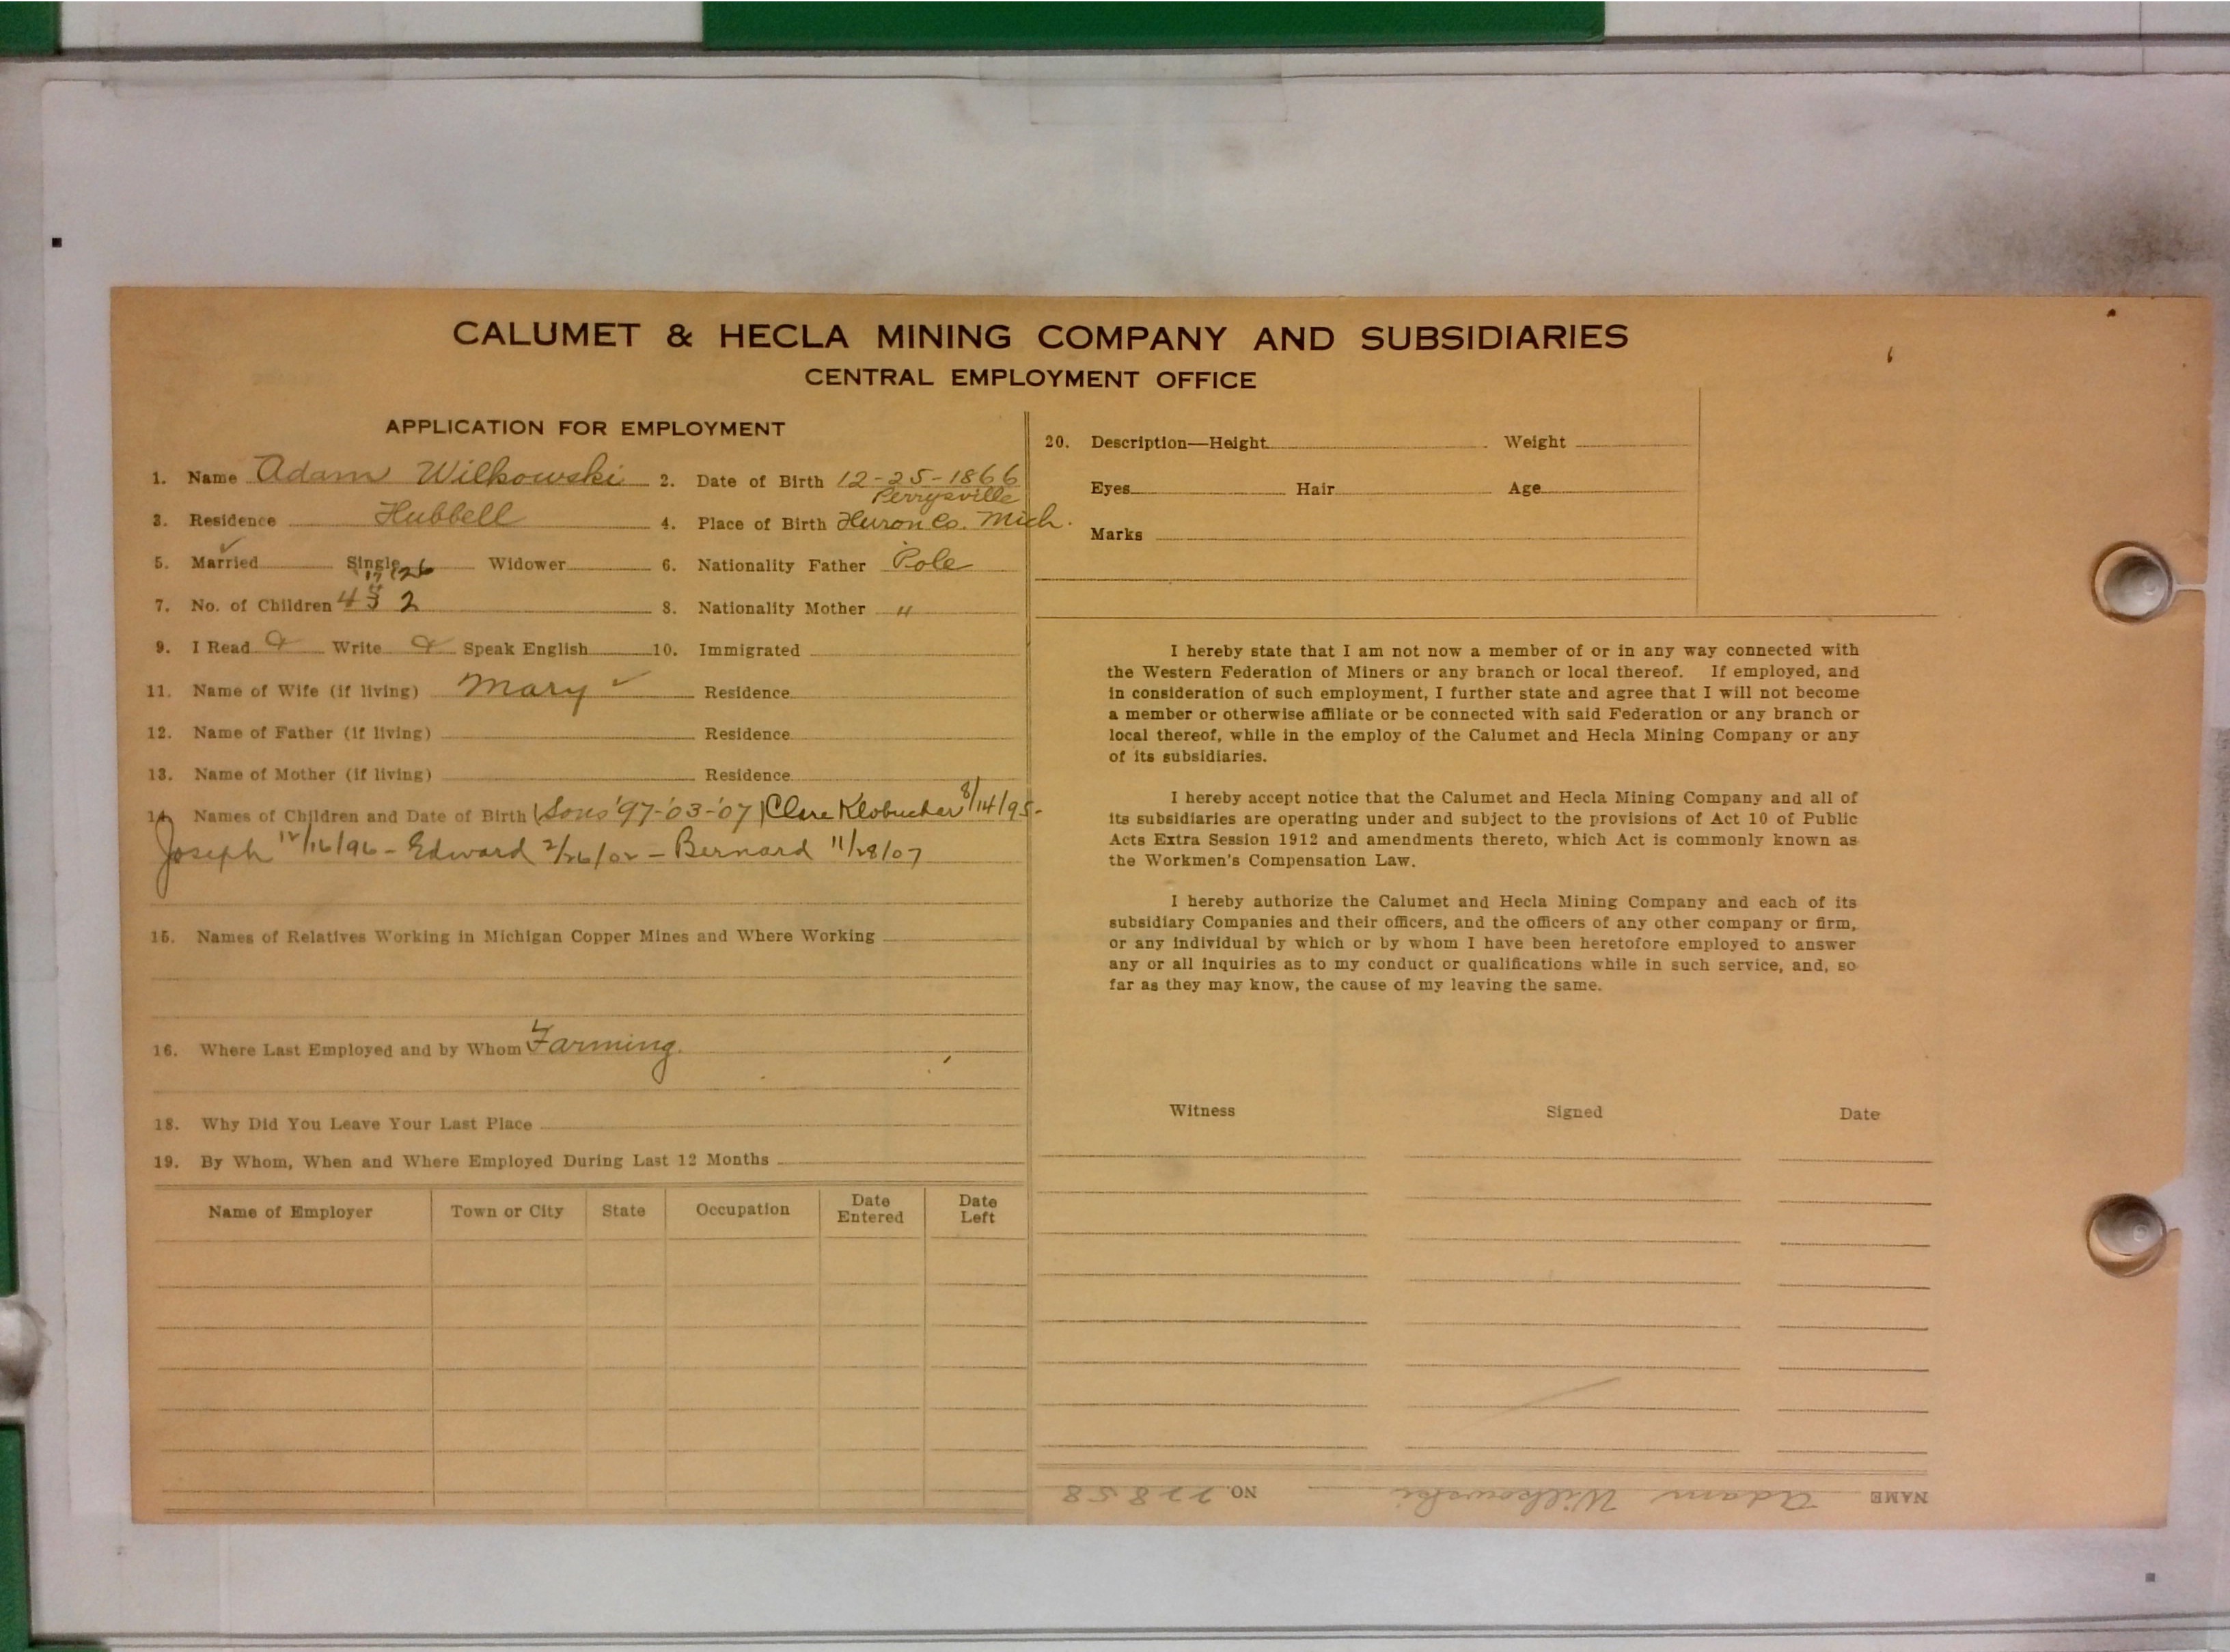 CALUMET & HECLA MINING COMPANY AND SUBSIDIARIES
CENTRAL EMPLOYMENT OFFICE
APPLICATION FOR EMPLOYMENT
1. Name Adam Wilkowski 2. Date of Birth 12-25-1866
Perrysville
3. Residence Hubbell 4. Place of Birth Huron Co. Mich.
5. Married ✓ Single Widower 6. Nationality Father Pole
7. No. of Children 4 3 2 8. Nationality Mother "
9. I Read Write Speak English 10. Immigrated
11. Name of Wife (if living) Mary ✓ Residence
12. Name of Father (if living) Residence
13. Name of Mother (if living) Residence
14. Names of Children and Date of Birth (Sons '97-'03-'07) Clare Klobucher 8/14/95-
Joseph 12/16/96 - Edward 2/26/02 - Bernard 11/28/07
15. Names of Relatives Working in Michigan Copper Mines and Where Working
16. Where Last Employed and by Whom Farming.
18. Why Did You Leave Your Last Place
19. By Whom, When and Where Employed During Last 12 Months
Name of Employer Town or City State Occupation Date Entered Date Left
20. Description—Height Weight
Eyes Hair Age
Marks
I hereby state that I am not now a member of or in any way connected with
the Western Federation of Miners or any branch or local thereof. If employed, and
in consideration of such employment, I further state and agree that I will not become
a member or otherwise affiliate or be connected with said Federation or any branch or
local thereof, while in the employ of the Calumet and Hecla Mining Company or any
of its subsidiaries.
I hereby accept notice that the Calumet and Hecla Mining Company and all of
its subsidiaries are operating under and subject to the provisions of Act 10 of Public
Acts Extra Session 1912 and amendments thereto, which Act is commonly known as
the Workmen's Compensation Law.
I hereby authorize the Calumet and Hecla Mining Company and each of its
subsidiary Companies and their officers, and the officers of any other company or firm,
or any individual by which or by whom I have been heretofore employed to answer
any or all inquiries as to my conduct or qualifications while in such service, and, so
far as they may know, the cause of my leaving the same.
Witness Signed Date
NAME Adam Wilkowski NO. 22858